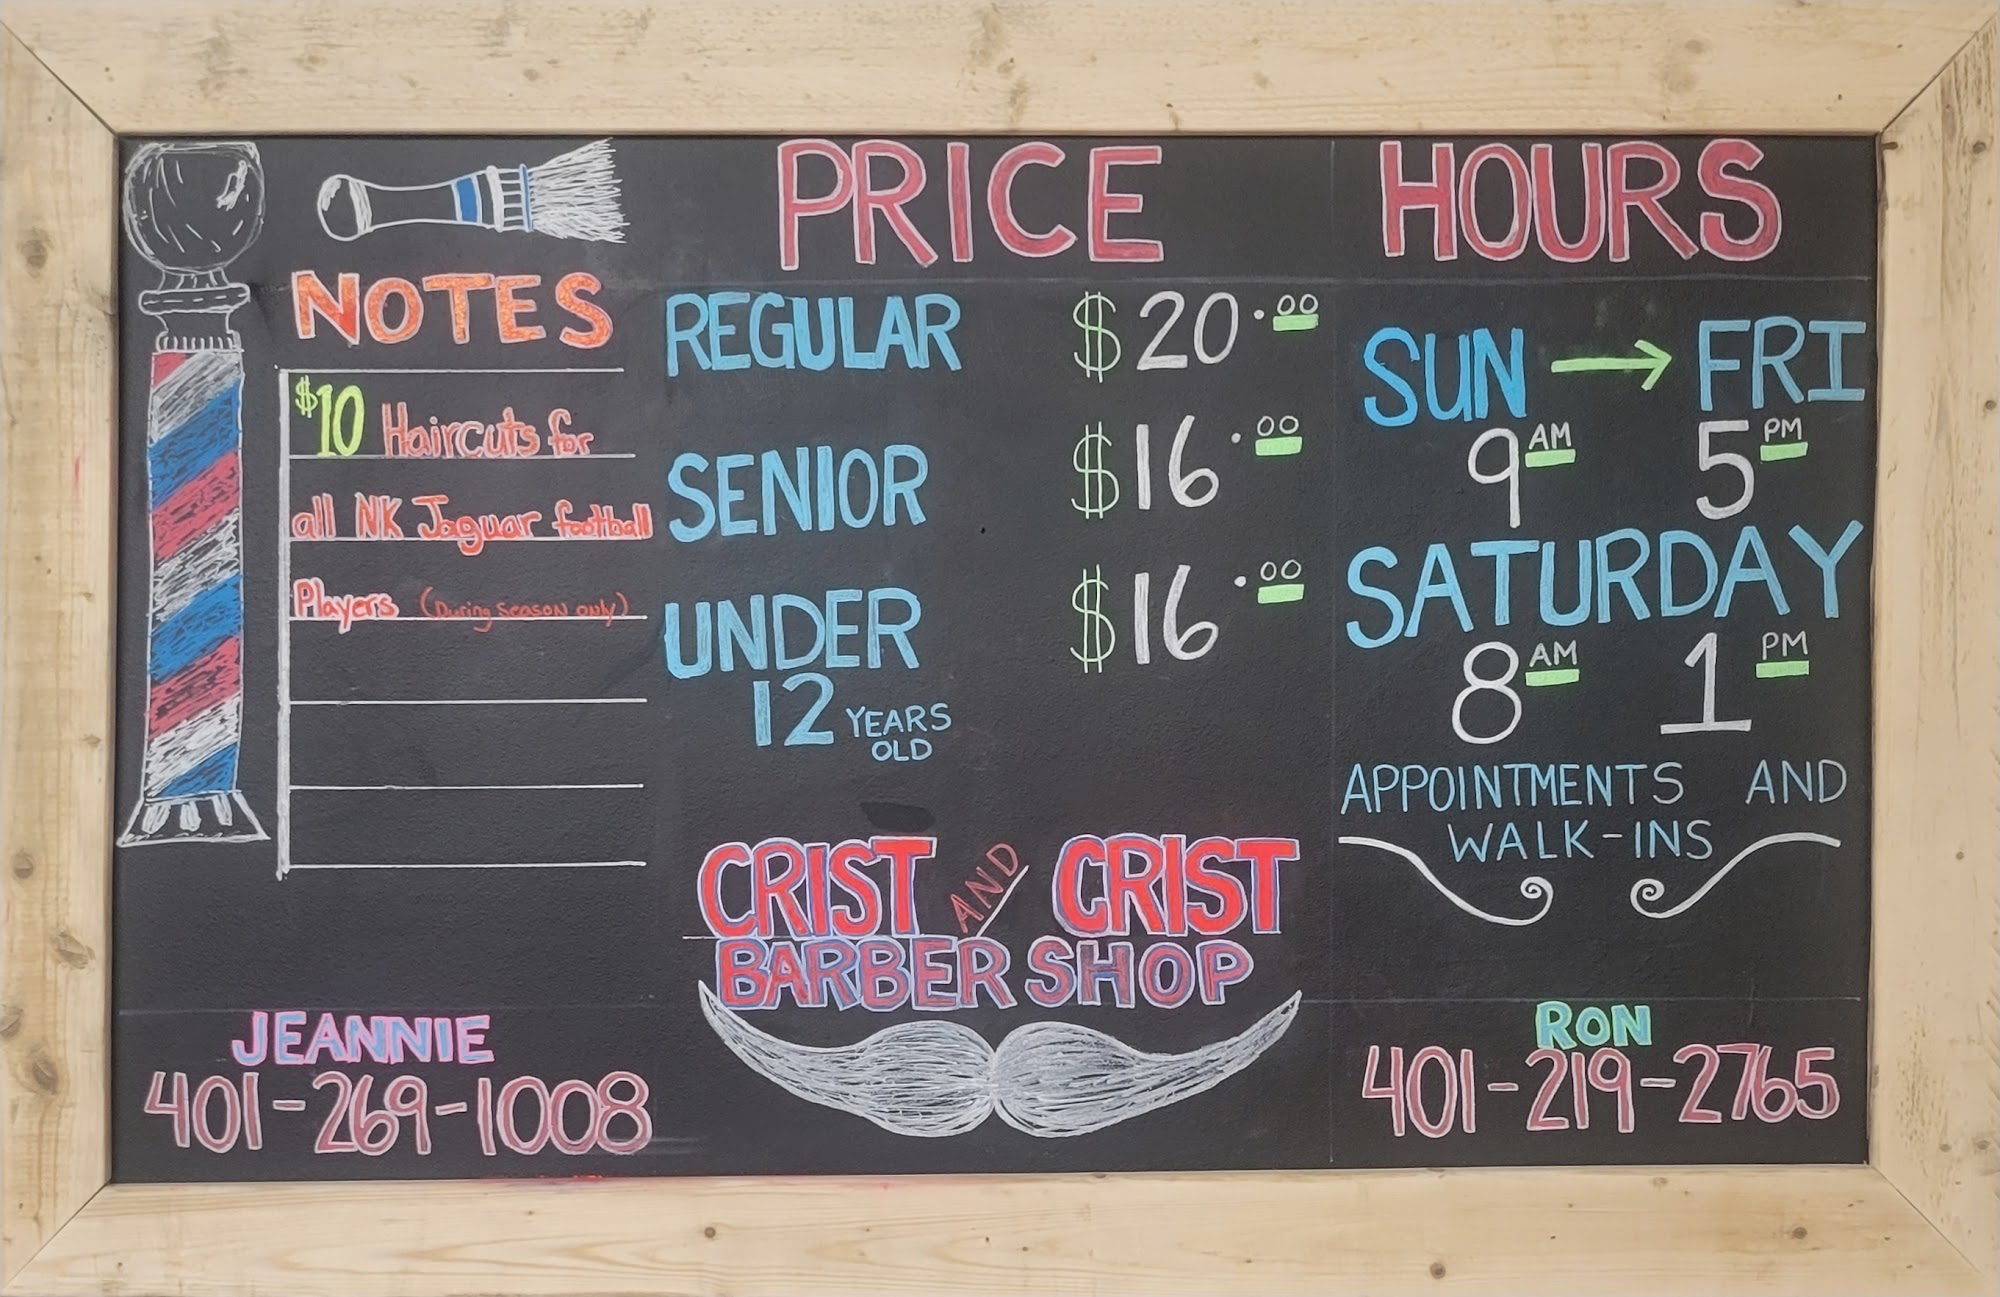 NOTES
$10 Haircuts for
all NK Jaguar football
Players (During Season only)
PRICE
REGULAR $20.00
SENIOR $16.00
UNDER $16.00
12 YEARS
OLD
HOURS
SUN → FRI
9AM 5PM
SATURDAY
8AM 1PM
APPOINTMENTS AND
WALK-INS
CRIST AND CRIST
BARBER SHOP
JEANNIE
401-269-1008
RON
401-219-2765